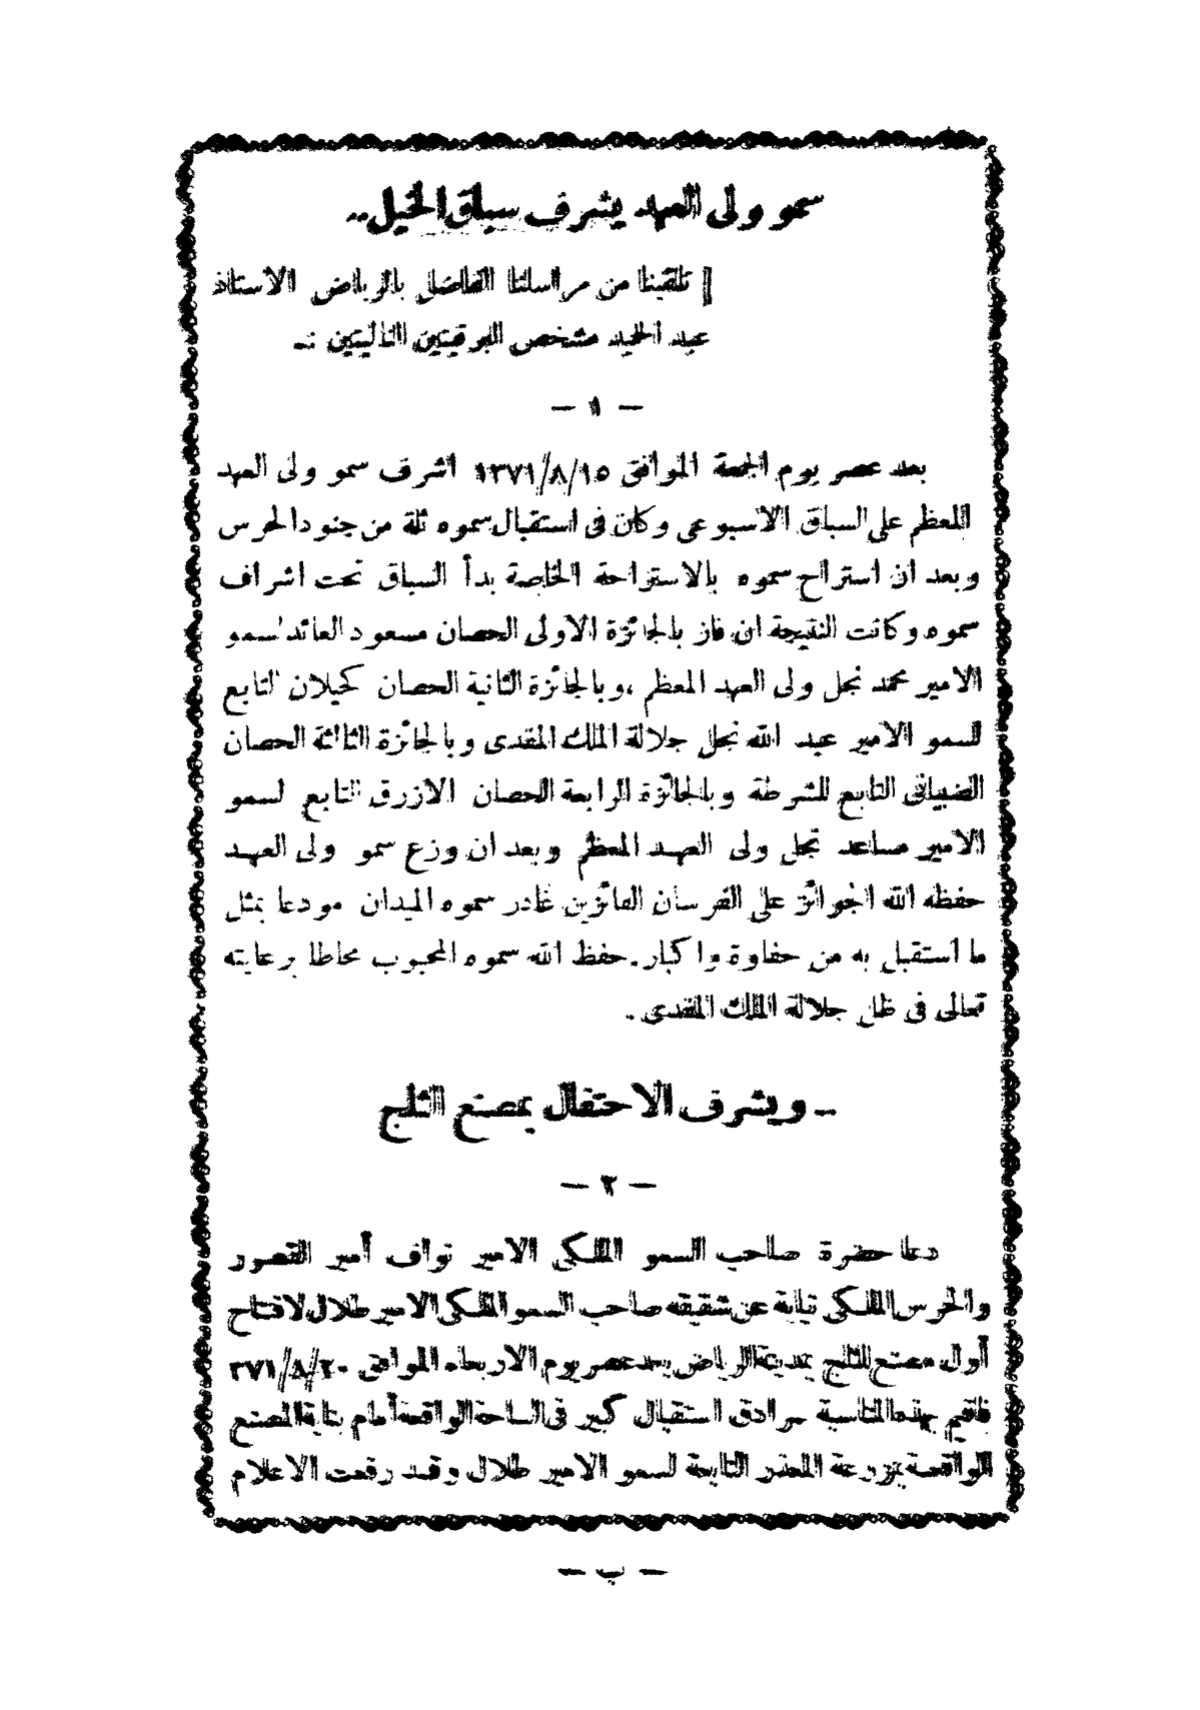 سمو ولى العهد يشرف سباق الخيل..
[ تلقينا من مراسلنا الفاضل بالرياض الاستاذ
عبد الحميد مشخص البرقيتين التاليتين :ـ
— ١ —
بعد عصر يوم الجمعة الموافق ١٣٧١/٨/١٥ اشرف سمو ولى العهد
المعظم على السباق الاسبوعى وكان فى استقبال سموه ثلة من جنود الحرس
وبعد ان استراح سموه بالاستراحة الخاصة بدأ السباق تحت اشراف
سموه وكانت النتيجة ان فاز بالجائزة الاولى الحصان مسعود العائد لسمو
الامير محمد نجل ولى العهد المعظم ، وبالجائزة الثانية الحصان كحيلان التابع
لسمو الامير عبد الله نجل جلالة الملك المفدى وبالجائزة الثالثة الحصان
الضبيانى التابع للشرطة وبالجائزة الرابعة الحصان الازرق التابع لسمو
الامير مساعد نجل ولى العهد المعظم وبعد ان وزع سمو ولى العهد
حفظه الله الجوائز على الفرسان الفائزين غادر سموه الميدان مودعا بمثل
ما استقبل به من حفاوة واكبار. حفظ الله سموه المحبوب محاطا برعايته
تعالى فى ظل جلالة الملك المفدى .
.. ويشرف الاحتفال بمصنع الثلج
— ٢ —
دعا حضرة صاحب السمو الملكى الامير نواف أمير القصور
والحرس الملكى نيابة عن شقيقه صاحب السمو الملكى الامير طلال لافتتاح
أول مصنع للثلج بمدينة الرياض بعد عصر يوم الاربعاء الموافق ٣٧١/٨/٢٠
فاقيم بهذه المناسبة سرادق استقبال كبير فى الساحة الواقعة أمام بناية المصنع
الواقعة بمزرعة المعذر التابعة لسمو الامير طلال وقد رفعت الاعلام
— ب —